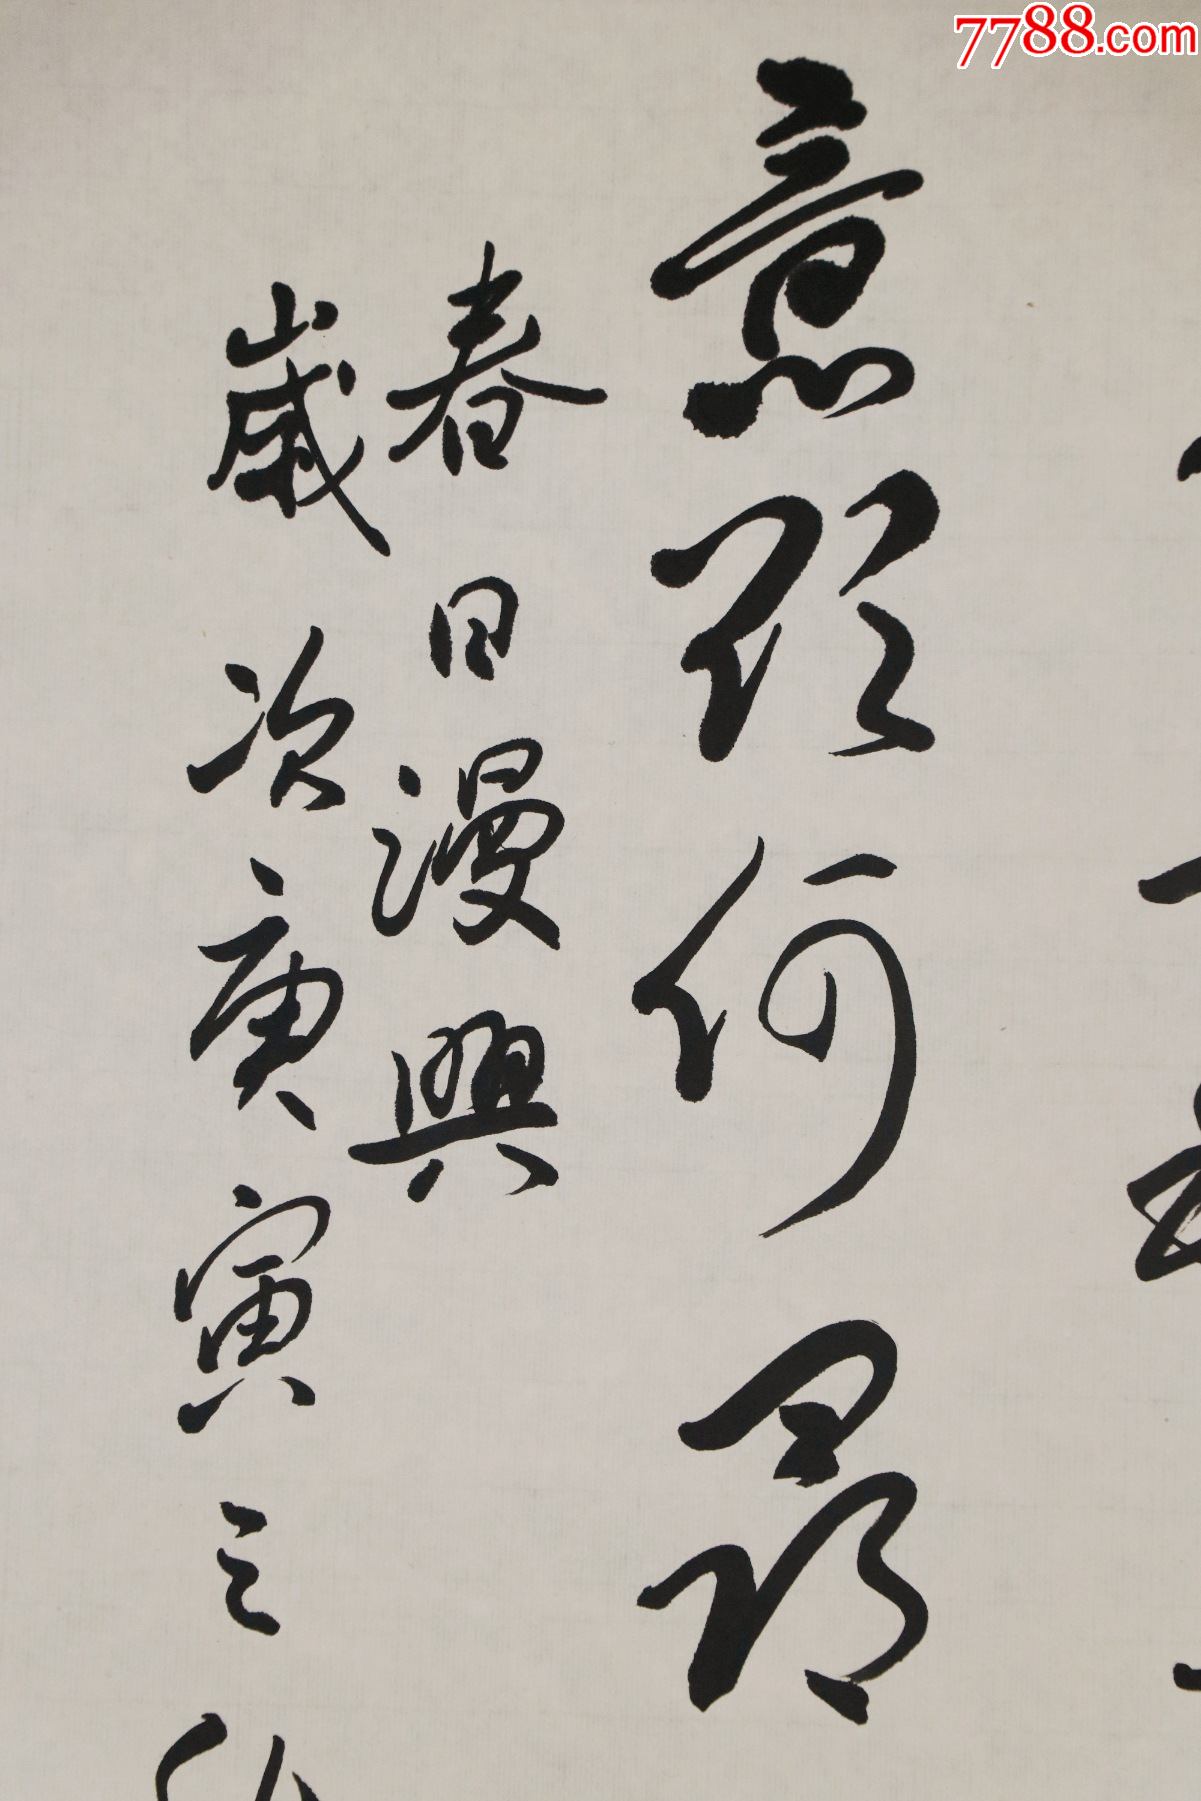 7788.com
意頗何尋
春日漫興
歲次庚寅之